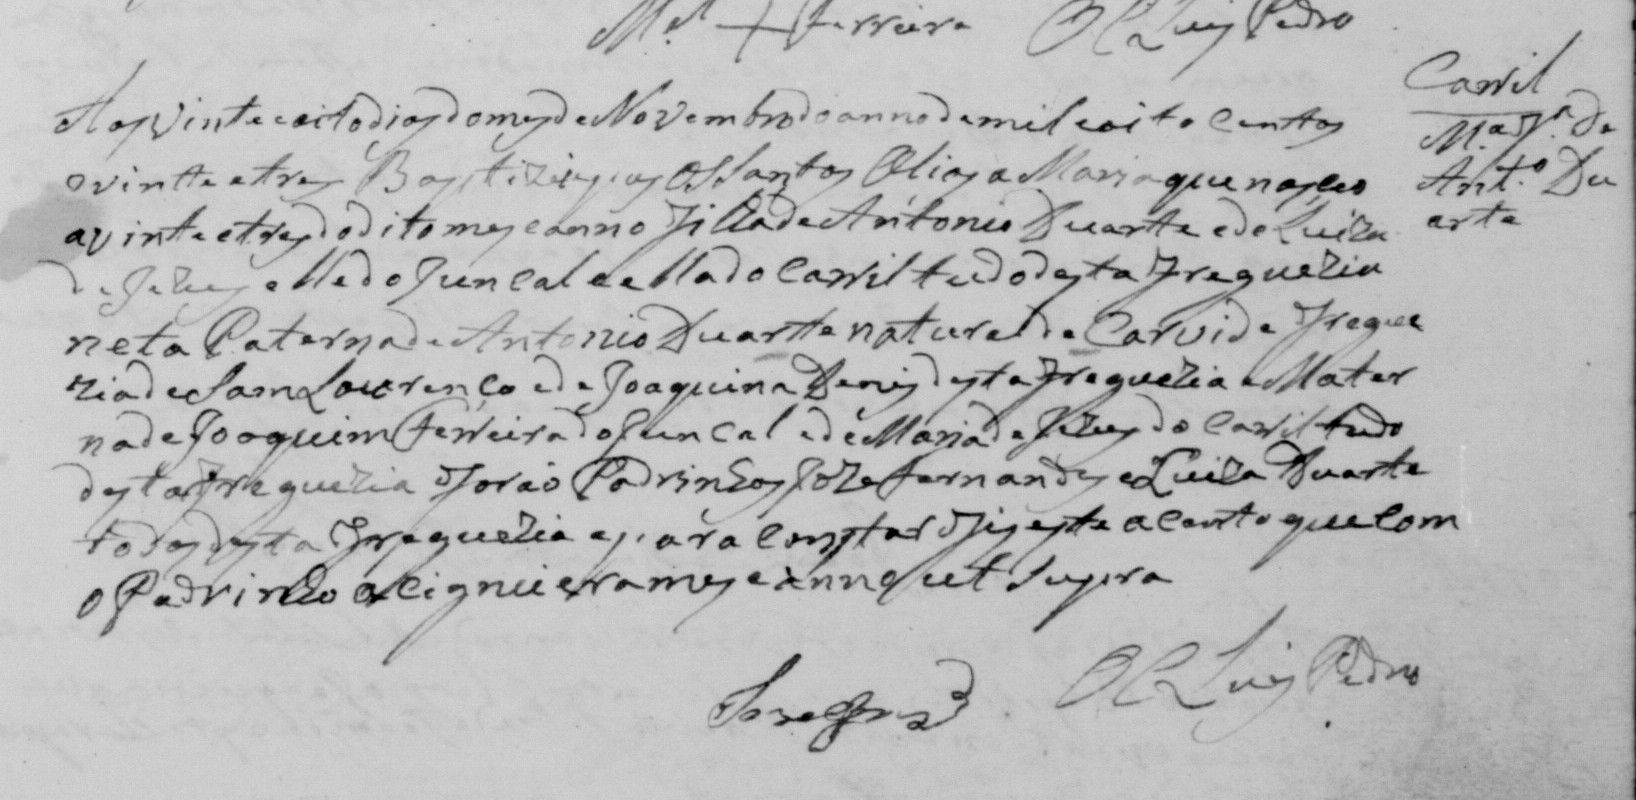 M.el + Ferreira O C Luis Pedro
Carril
M.a f.a de
Ant.o Du
arte
Aos vinte e oito dias do mes de Novembro do anno de mil e oito centos
e vinte e tres Baptizei e pus os Santos Olios a Maria que nasceo
a vinte e tres do dito mes e anno filha de Antonio Duarte e de Luiza
de Jezus elle do Juncal e ella do Carril tudo desta Freguezia
neta Paterna de Antonio Duarte natural de Carvide Fregue
zia de Sam Lourenço e de Joaquina Denis desta Freguezia e Mater
na de Joaquim Ferreira do Juncal e de Maria de Jezus do Carril tudo
desta Freguezia forão Padrinhos Joze Fernandes e Luiza Duarte
todos desta Freguezia e para constar fis este acento que com
o Padrinho acignei era mes e anno ut supra
Joze Frz
O C Luis Pedro